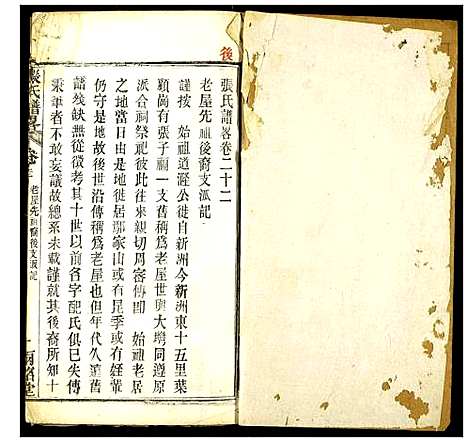 後
張氏譜畧卷二十二
老屋先祖後裔支派記
謹按 始祖道遷公徙自新洲今新洲東十五里葉
顆崗有張子嗣一支舊稱爲老屋世與大塆同遵原
派合祠祭祀此往來親切周寄傳卽 始祖老居
之地當日由是地徙居鄒家山或有昆季或有姪輩
仍守是地故後世沿傳稱爲老屋也但年代久遠舊
譜殘缺無從徵考其十世以前名字配氏俱已失傳
秉筆者不敢妄議故總系未載謹就其後裔所知十
張氏譜畧
卷二
老屋先祖裔後支派記
一